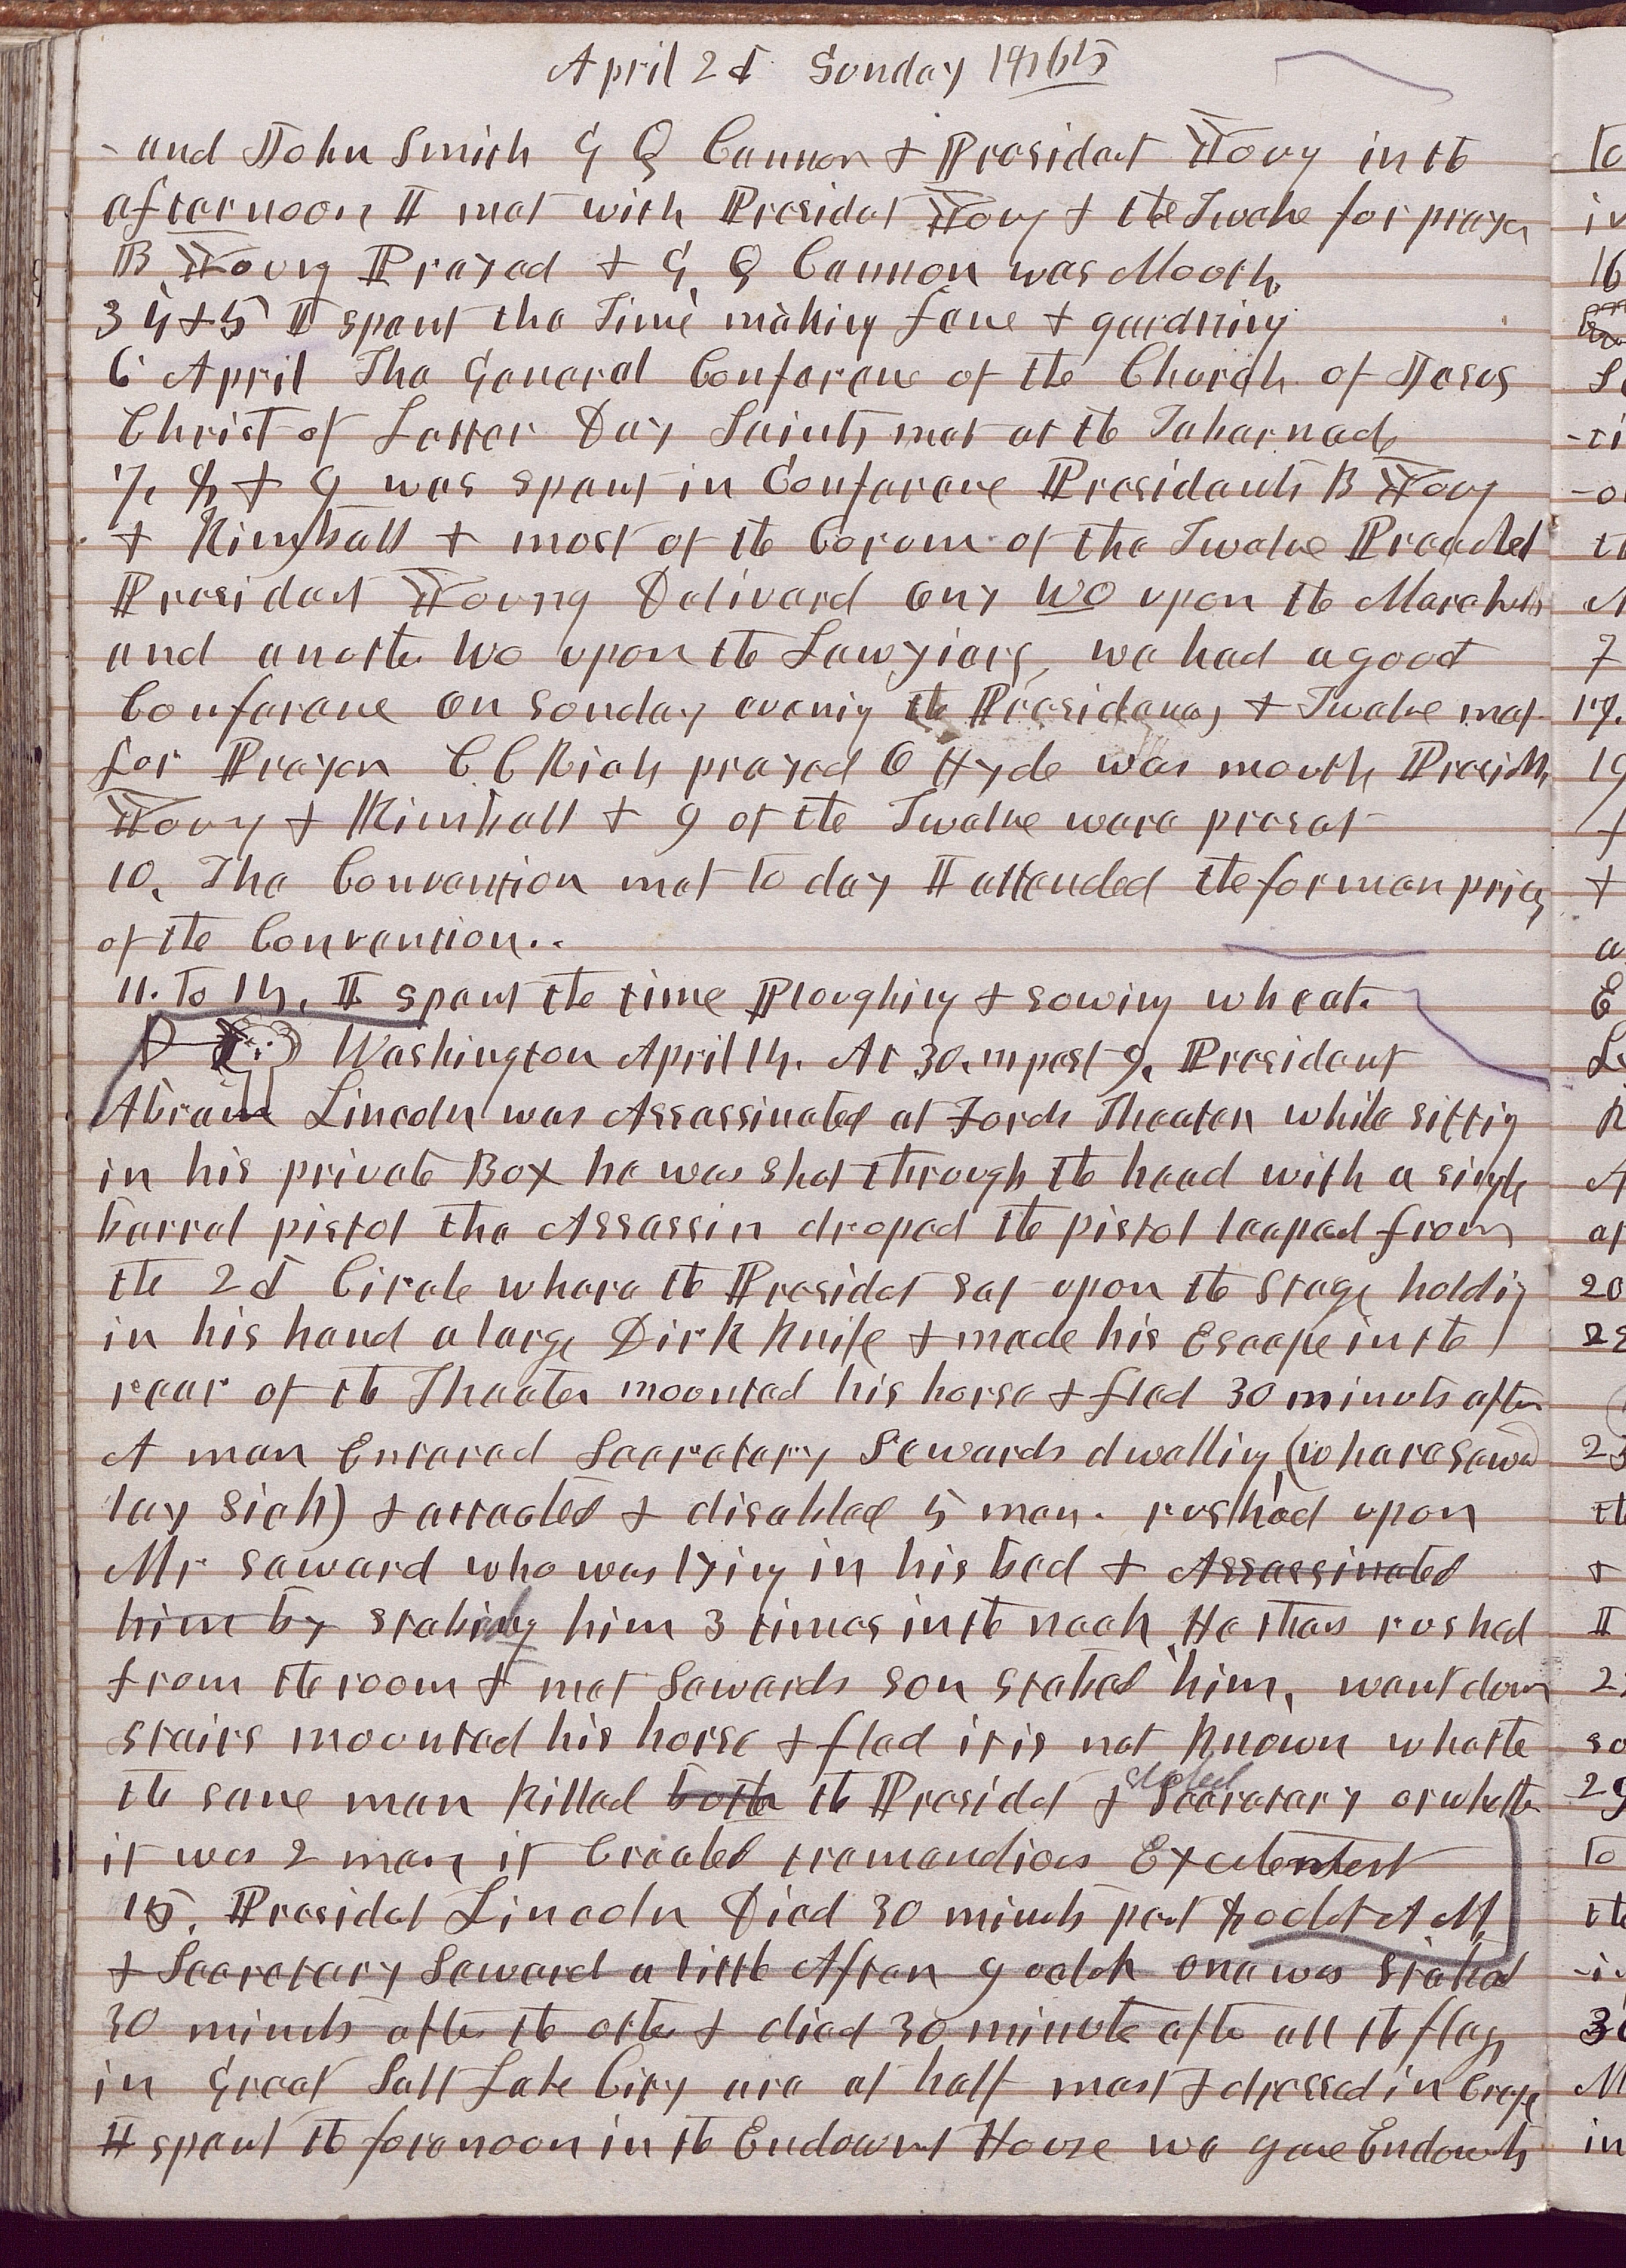 April 2d Sunday 1865
- and John Smith G Q Cannon & President Young in the
afternoon I met with Presidet Young & the Twelve for prayer
B Young Prayed & G. Q Cannon was Mooth.
3 4 & 5 I spent the Time making fence & gardning
6 April The General Conference of the Church of Jesus
Christ of Latter Day Saints met at the Tabernacle
7, 8, & 9 was spent in Conference Presidents B Young
& Kimball & most of the Corum of the Twelve Preached
President Young Delivered one wo upon the Marchets
and another wo upon the Lawyiers, we had a good
Conference on Sonday evening the Presidency & Twelve met
for Prayer C C Rich prayed O Hyde was mouth Presidets
Young & Kimball & 9 of the Twelve were preset
10, The Convention met to day I attended the former pricy
of the Convention..
11. To 14. I spent the time Ploughing & sowing wheat.
Washington April 14. At 30. m past 9, President
Abram Lincoln was Assassinated at Fords Theater while sittig
in his private Box he was shot through the head with a single
barrel pistol the Assassin droped the pistol leaped from
the 2d Circle where the Presidet sat upon the Stage holdig
in his hand a large Dirk Knife & made his Escape in the
rear of the Theater moonted his horse & fled 30 minuts after
A man Entered Secretary Sewards dwelling (whare Seward
lay sick) & attacted & disabled 5 men. rushed upon
Mr Seward who was lying in his bed & Assassinated
him by stabing him 3 times in the neck. He then rushed
from the room & met Sewards son stabed him, went down
stairs moonted his horse & fled it is not Known whethe
the same man Killed both the Presidet & stabed Secretary or whether
it was 2 men it Created tremendious Excitement
15. Presidet Lincoln Died 30 minuts past 7 oclok A M,
& Secretary Seward a little After 9 oclok one was stabed
30 minuts after the other & died 30 minute after all the flags
in Great Salt Lake City are at half mast & dressed in Crape
I spent the forenoon in the Endowmet House we gave Endowmets